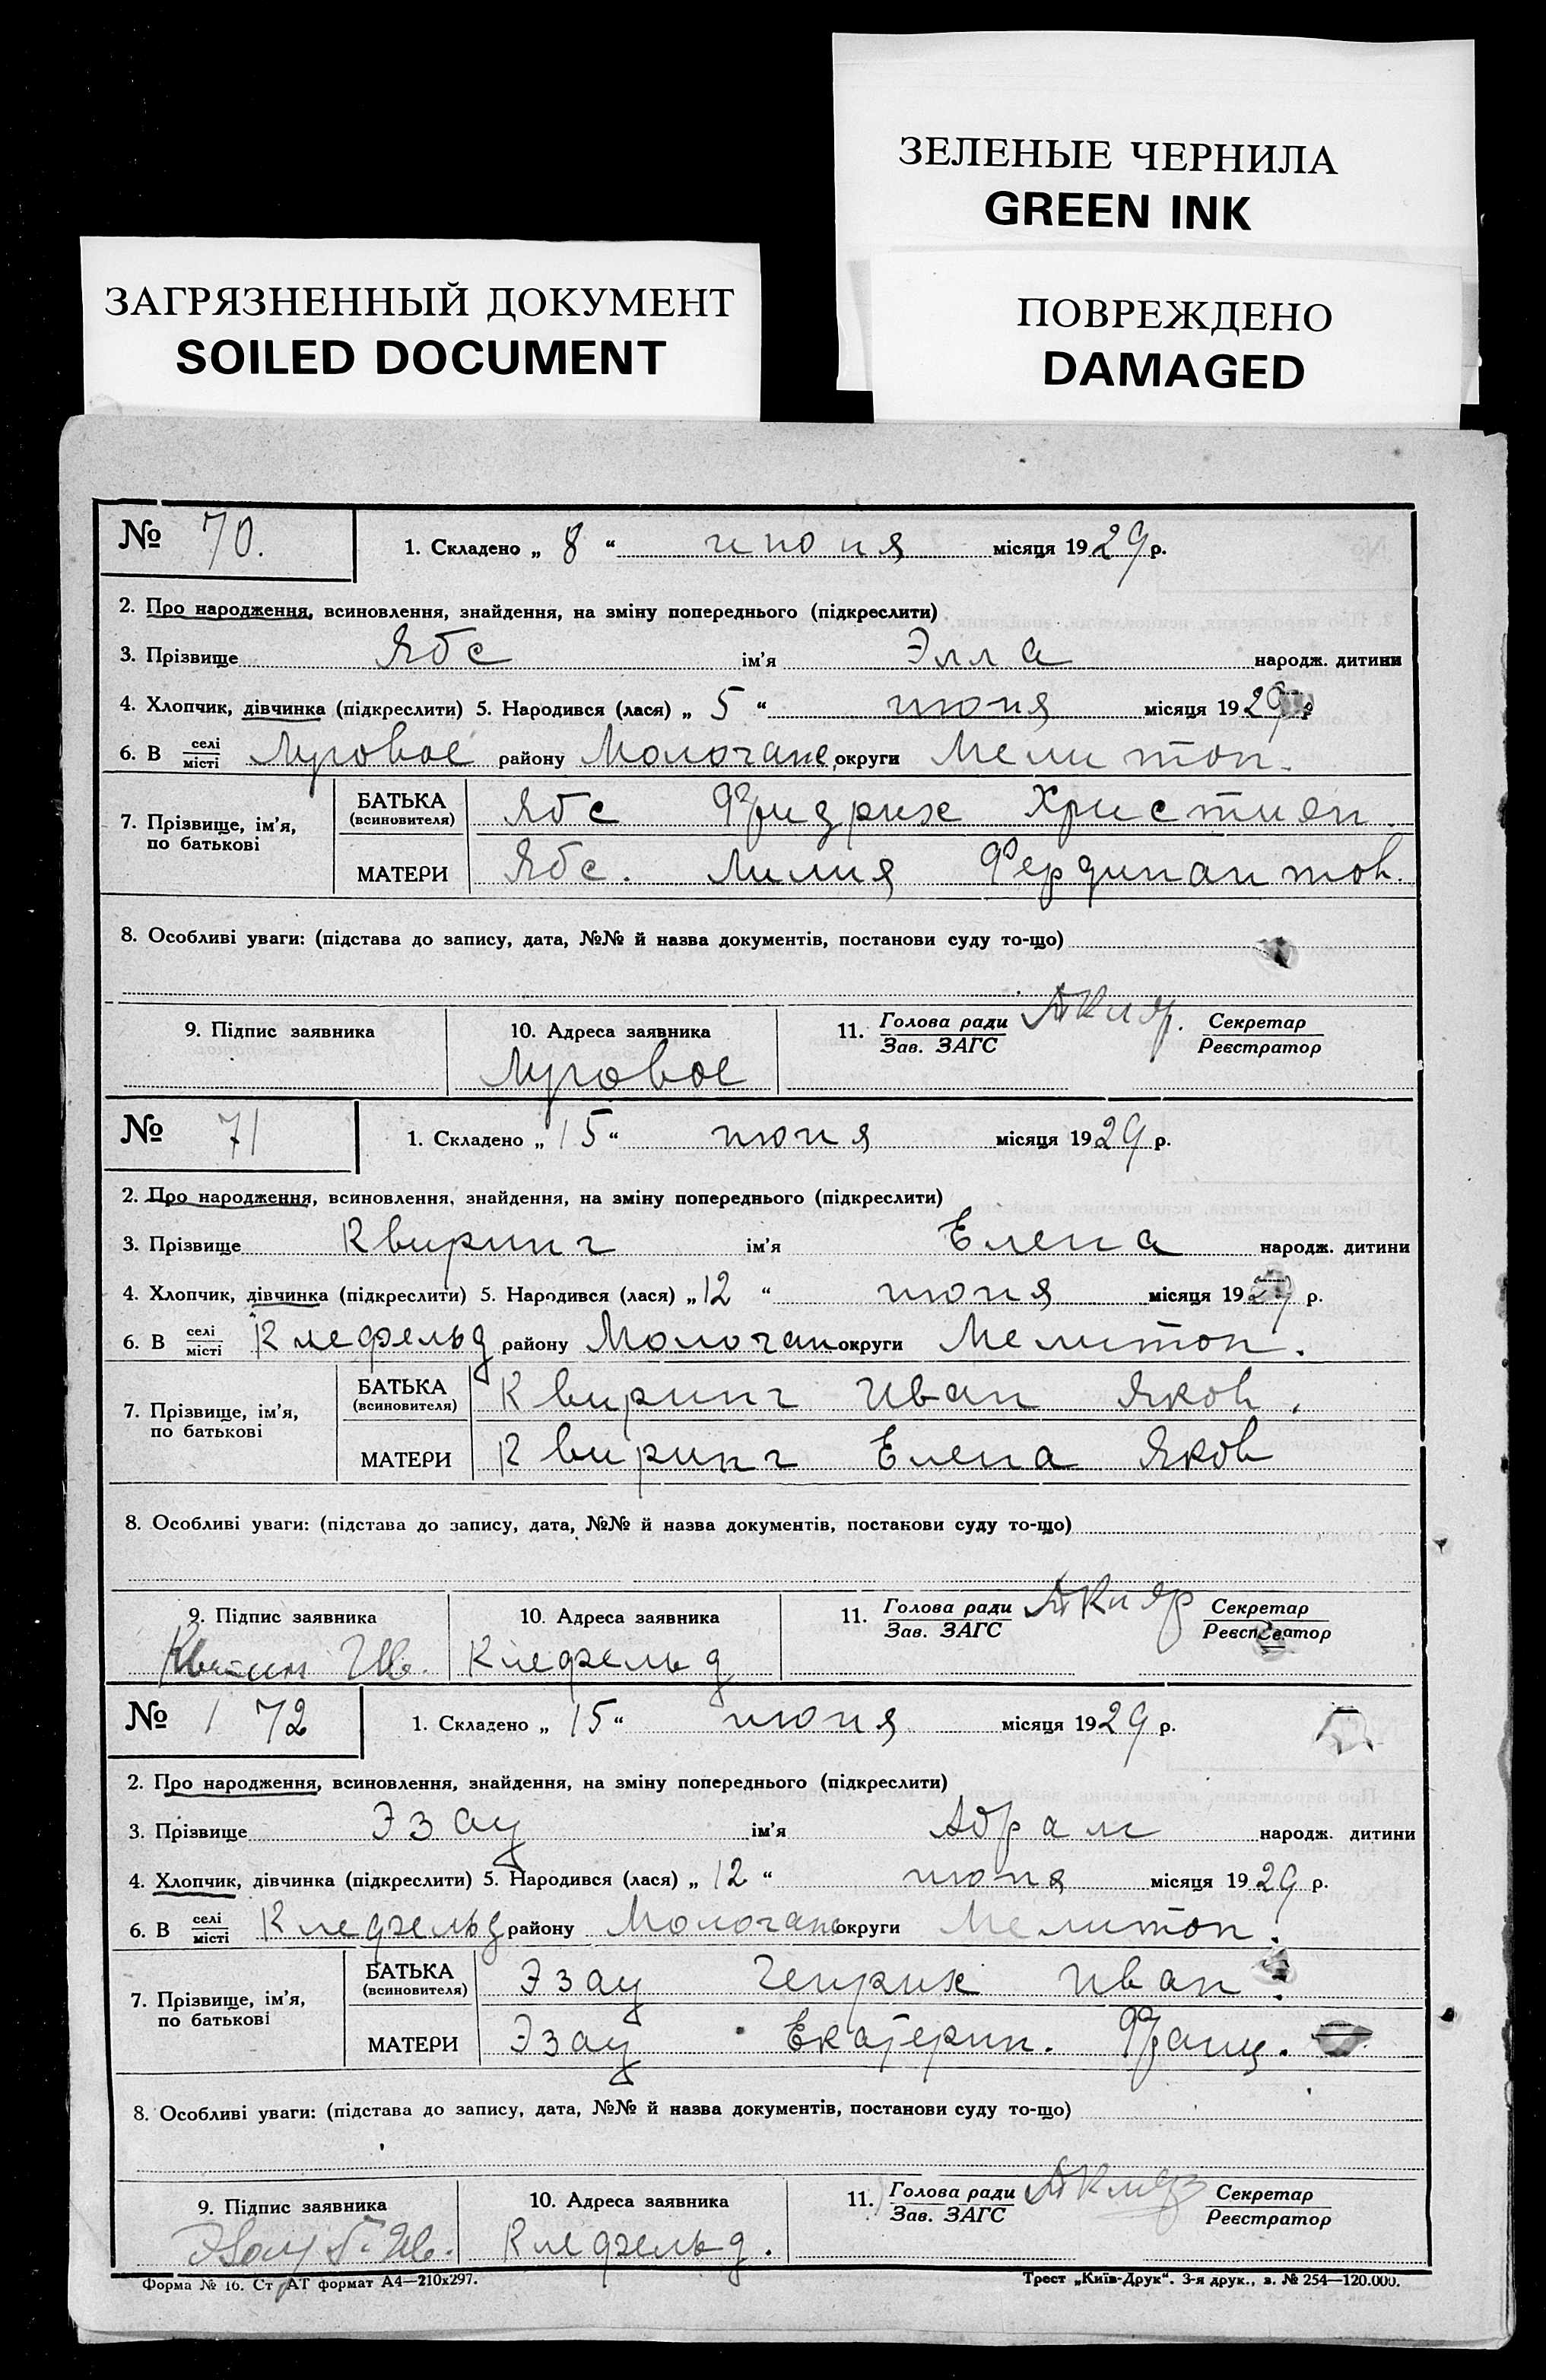 ЗЕЛЕНЫЕ ЧЕРНИЛА
GREEN INK
ЗАГРЯЗНЕННЫЙ ДОКУМЕНТ
SOILED DOCUMENT
ПОВРЕЖДЕНО
DAMAGED
№ 70. 1. Складено „ 8 “ июня місяця 1929 р.
2. Про народження, всиновлення, знайдення, на зміну попереднього (підкреслити)
3. Прізвище Ябс ім'я Элла народж. дитини
4. Хлопчик, дівчинка (підкреслити) 5. Народився (лася) „ 5 “ июня місяця 1929 р
6. В селі/місті Луговое району Молочанс округи Мелитоп.
7. Прізвище, ім'я, по батькові БАТЬКА (всиновителя) Ябс Фридрих Христиан.
МАТЕРИ Ябс. Лилия Фердинантов.
8. Особливі уваги: (підстава до запису, дата, №№ й назва документів, постанови суду то-що)
9. Підпис заявника 10. Адреса заявника 11. Голова ради/Зав. ЗАГС Секретар/Реєстратор
Луговое
№ 71 1. Складено „ 15 “ июня місяця 1929 р.
2. Про народження, всиновлення, знайдення, на зміну попереднього (підкреслити)
3. Прізвище Квиринг ім'я Елена народж. дитини
4. Хлопчик, дівчинка (підкреслити) 5. Народився (лася) „ 12 “ июня місяця 1929 р.
6. В селі/місті Клефельд району Молочан округи Мелитоп.
7. Прізвище, ім'я, по батькові БАТЬКА (всиновителя) Квиринг Иван Яков.
МАТЕРИ Квиринг Елена Яков
8. Особливі уваги: (підстава до запису, дата, №№ й назва документів, постанови суду то-що)
9. Підпис заявника 10. Адреса заявника 11. Голова ради/Зав. ЗАГС Секретар/Реєстратор
Клефельд
№ 72 1. Складено „ 15 “ июня місяця 1929 р.
2. Про народження, всиновлення, знайдення, на зміну попереднього (підкреслити)
3. Прізвище Эзау ім'я Абрам народж. дитини
4. Хлопчик, дівчинка (підкреслити) 5. Народився (лася) „ 12 “ июня місяця 1929 р.
6. В селі/місті Клефельд району Молочанс округи Мелитоп.
7. Прізвище, ім'я, по батькові БАТЬКА (всиновителя) Эзау Генрих Иван.
МАТЕРИ Эзау Екатерин. Франц.
8. Особливі уваги: (підстава до запису, дата, №№ й назва документів, постанови суду то-що)
9. Підпис заявника 10. Адреса заявника 11. Голова ради/Зав. ЗАГС Секретар/Реєстратор
Эзау Г. Ив. Клефельд.
Форма № 16. Ст АТ формат А4—210х297. Трест „Київ-Друк“. 3-я друк., з. № 254—120.000.